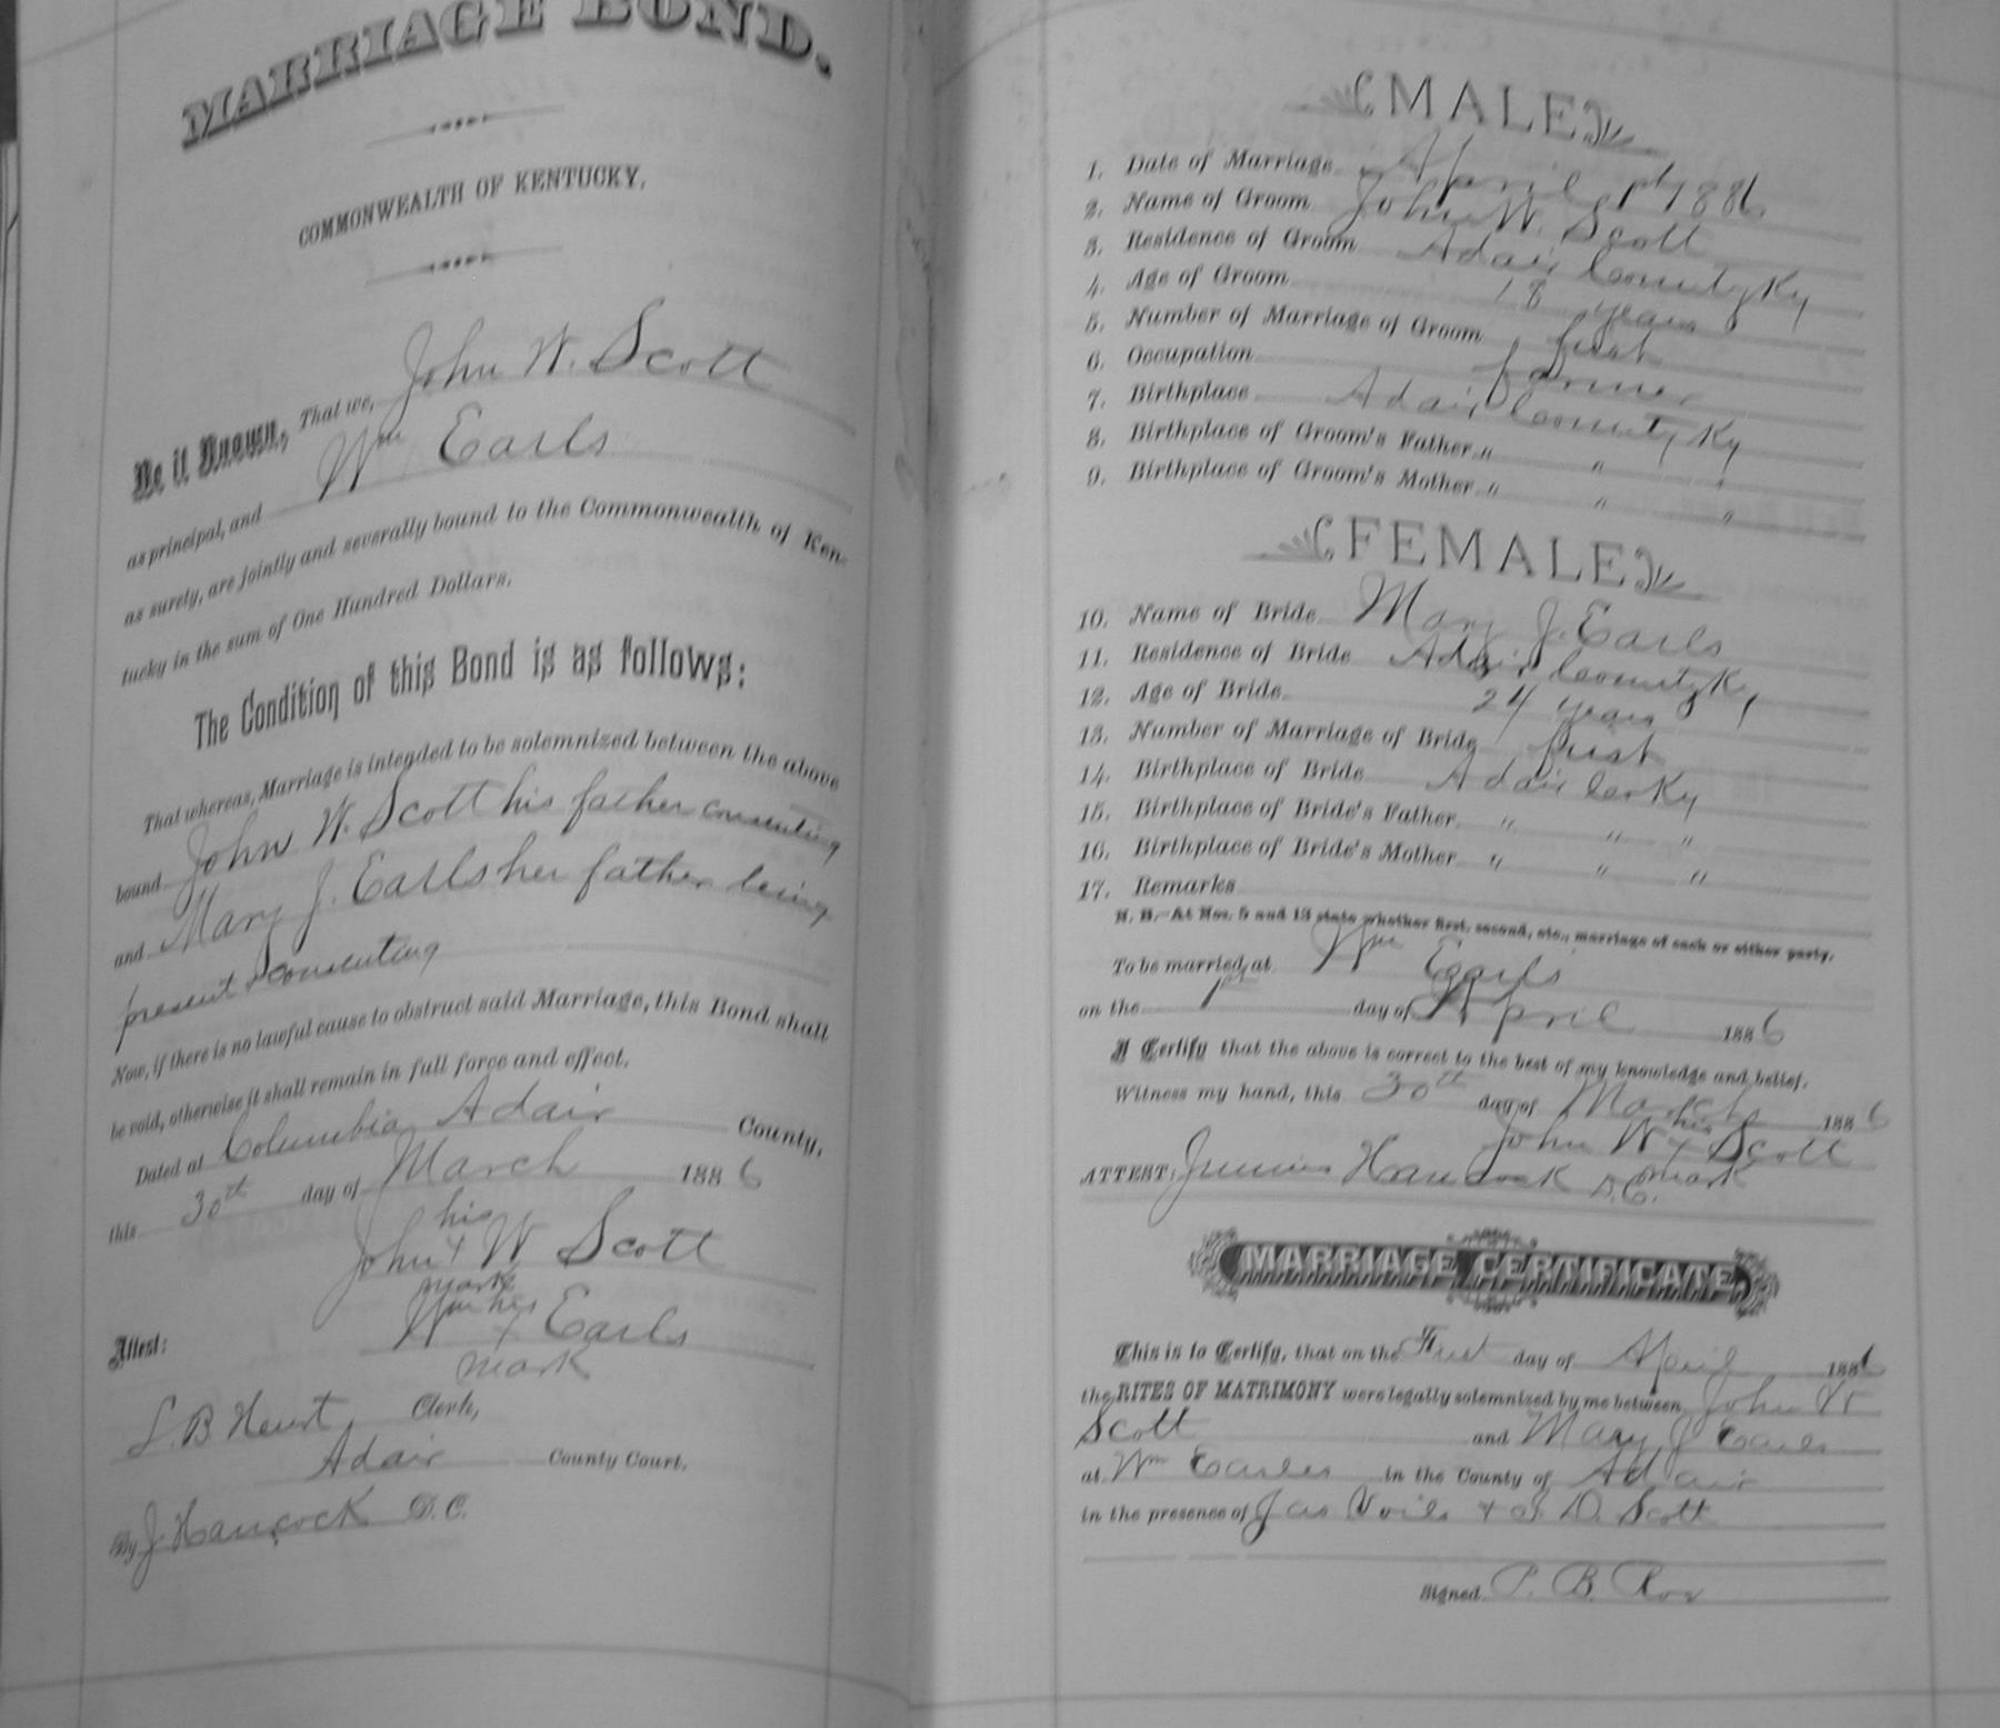 MARRIAGE BOND.
COMMONWEALTH OF KENTUCKY.
Be it Known, That we, John W. Scott
as principal, and Wm Earls
as surety, are jointly and severally bound to the Commonwealth of Ken-
tucky in the sum of One Hundred Dollars.
The Condition of this Bond is as follows:
That whereas, Marriage is intended to be solemnized between the above
bound John W. Scott his father consenting
and Mary J. Earls her father being
present & consenting
Now, if there is no lawful cause to obstruct said Marriage, this Bond shall
be void, otherwise it shall remain in full force and effect.
Dated at Columbia Adair County,
this 30th day of March 1886
his
John x W Scott
mark
Wm his x Earls
mark
Attest:
Clerk,
Adair County Court.
By J. Hancock D.C.
MALE
1. Date of Marriage April 1st 1886
2. Name of Groom John W. Scott
3. Residence of Groom Adair County Ky
4. Age of Groom 18 years
5. Number of Marriage of Groom first
6. Occupation farmer
7. Birthplace Adair County Ky
8. Birthplace of Groom's Father " " "
9. Birthplace of Groom's Mother " " "
FEMALE
10. Name of Bride Mary J. Earls
11. Residence of Bride Adair County Ky
12. Age of Bride 24 years
13. Number of Marriage of Bride first
14. Birthplace of Bride Adair Co Ky
15. Birthplace of Bride's Father " " "
16. Birthplace of Bride's Mother " " "
17. Remarks
N. B.—At Nos. 5 and 13 state whether first, second, etc., marriage of each or either party.
To be married at Wm Earls
on the 1st day of April 1886
I Certify that the above is correct to the best of my knowledge and belief.
Witness my hand, this 30th day of March 1886
his
John W x Scott
mark
ATTEST: Junius Hancock D.C.
MARRIAGE CERTIFICATE
This is to Certify, that on the First day of April 1886
the RITES OF MATRIMONY were legally solemnized by me between John W
Scott and Mary J Earls
at Wm Earles in the County of Adair
in the presence of Jas Voils & D. Scott
Signed P. B. Roy